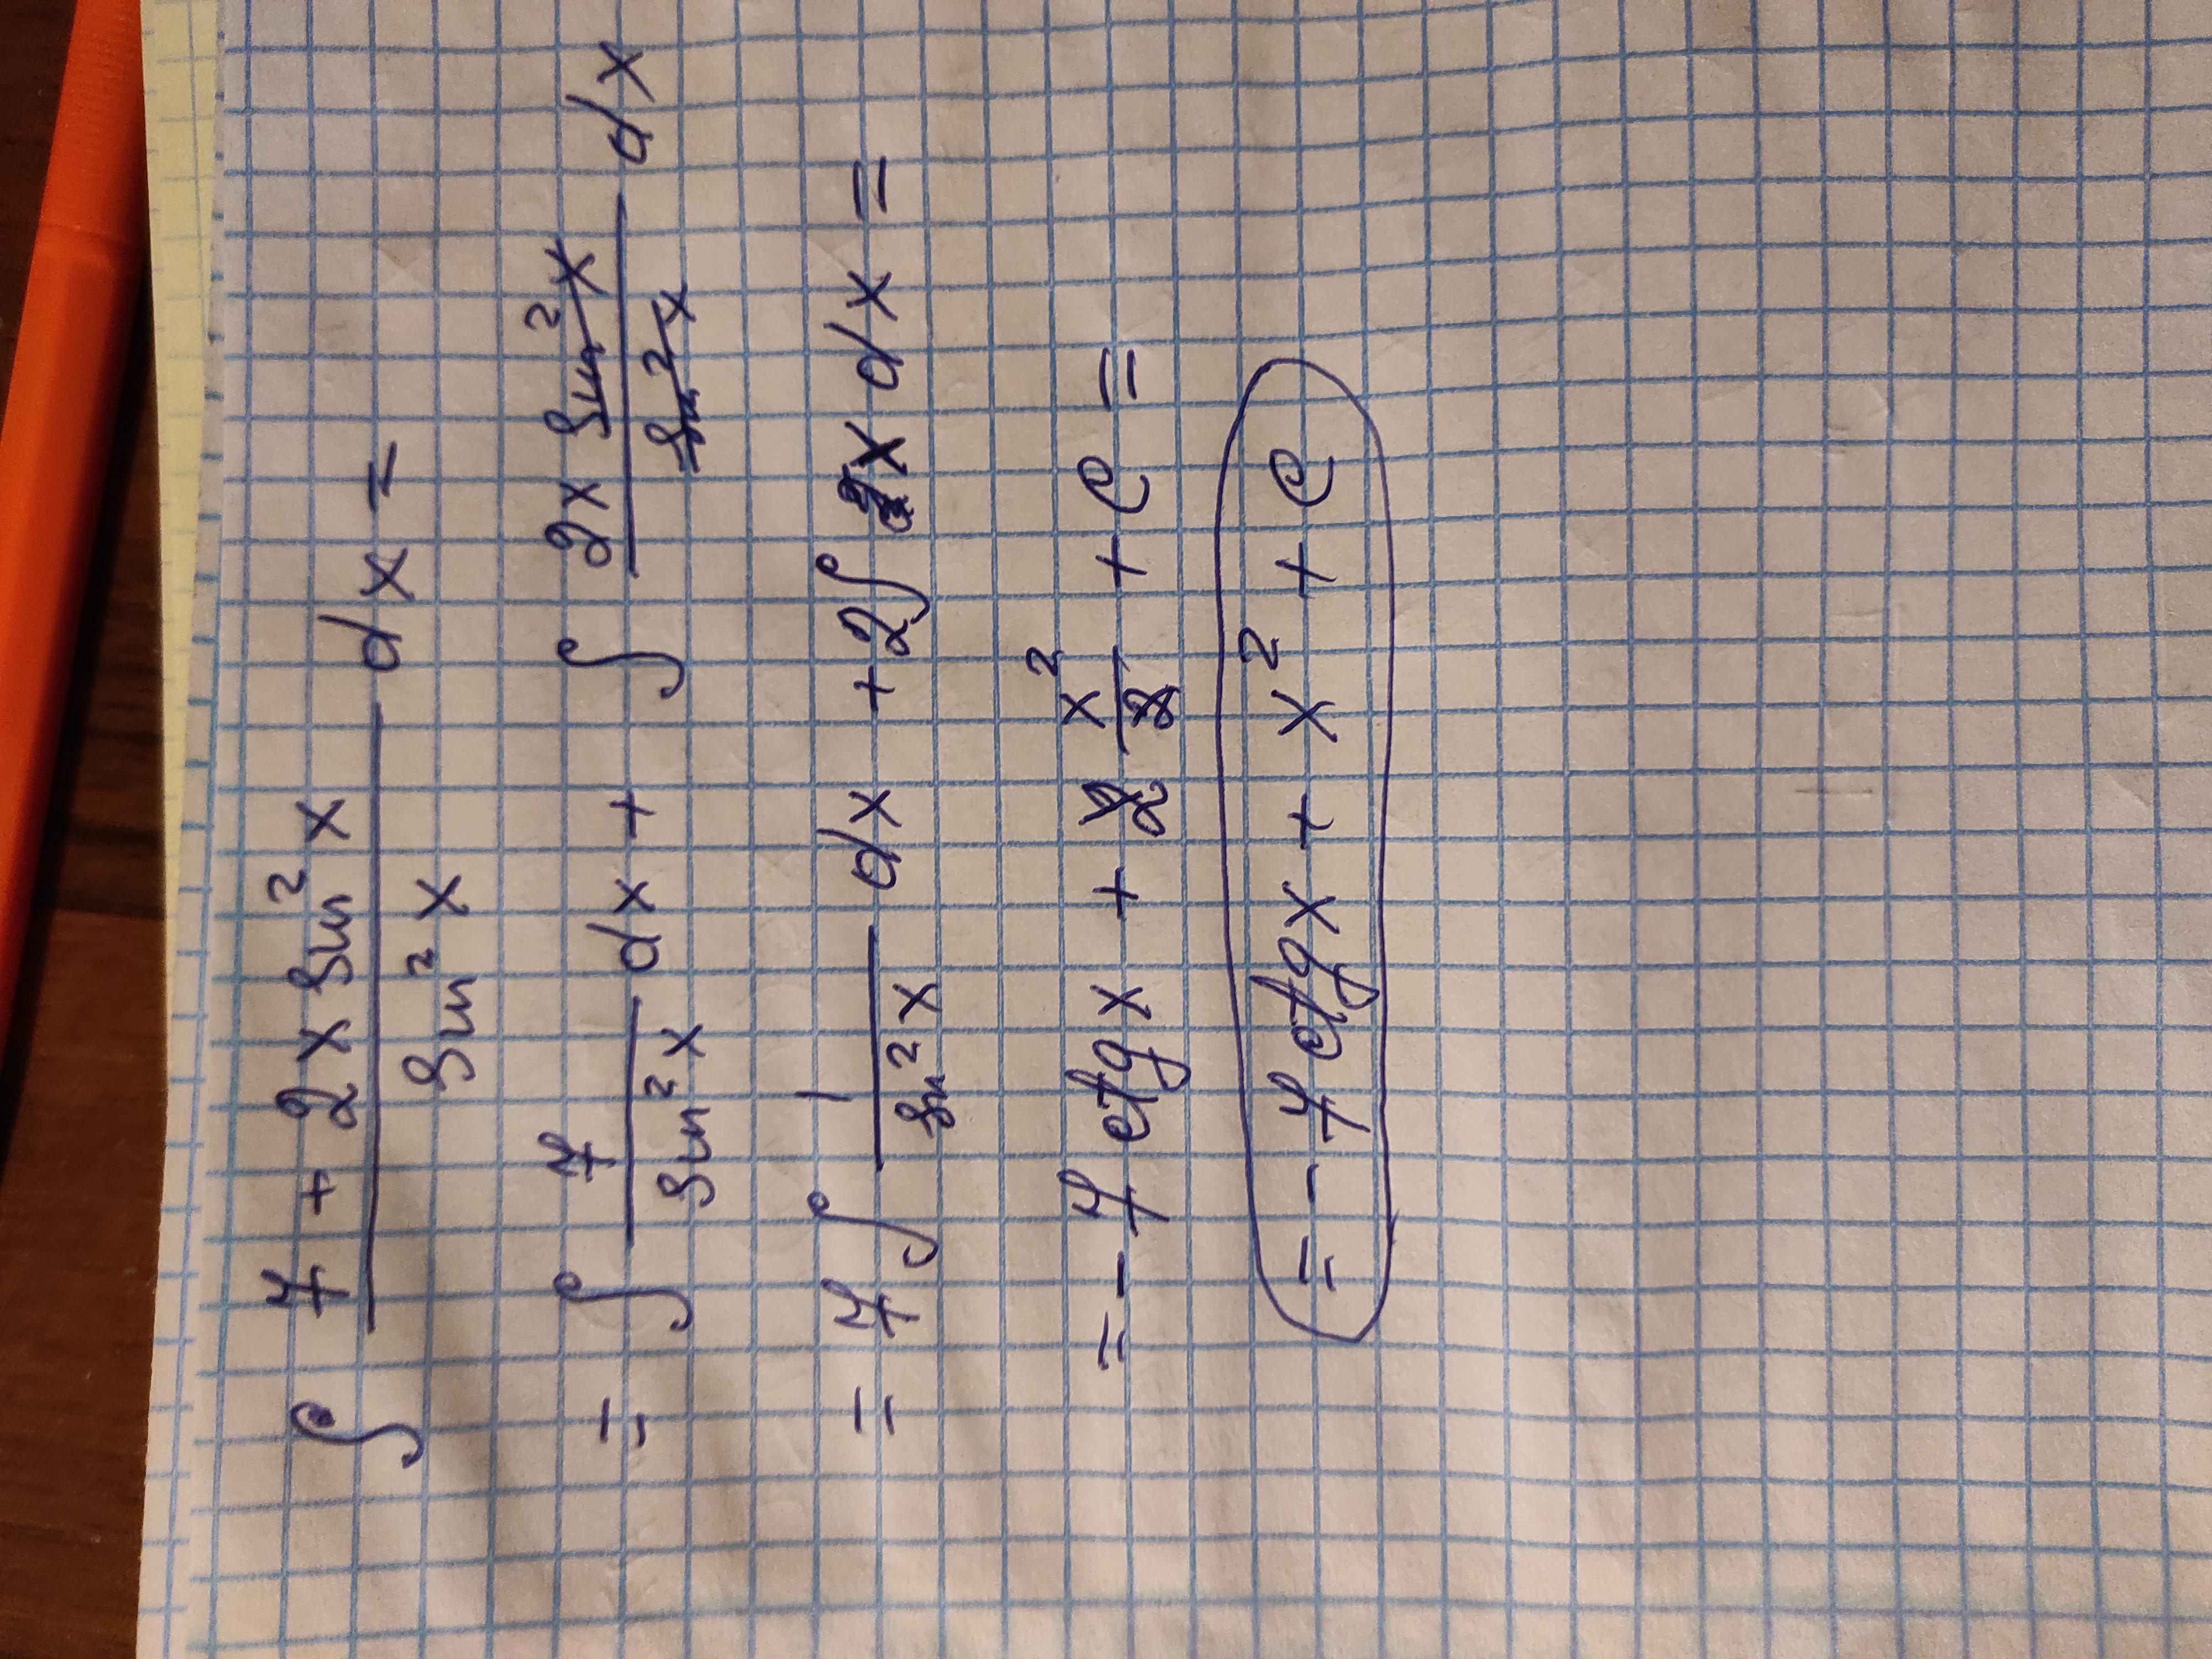 ∫ (7 + 2x sin²x)/(sin²x) dx =
= ∫ 7/(sin²x) dx + ∫ (2x sin²x)/(sin²x) dx
= 7 ∫ 1/(sin²x) dx + 2∫ x dx =
= - 7 ctg x + 2 x²/2 + C =
= - 7 ctg x + x² + C